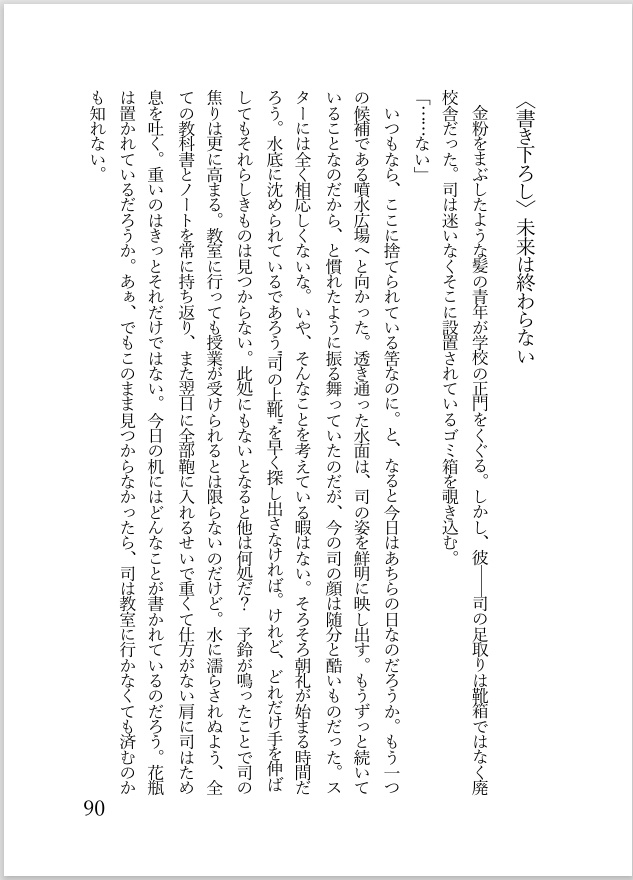 〈書き下ろし〉未来は終わらない
金粉をまぶしたような髪の青年が学校の正門をくぐる。しかし、彼――司の足取りは靴箱ではなく廃
校舎だった。司は迷いなくそこに設置されているゴミ箱を覗き込む。
「……ない」
いつもなら、ここに捨てられている筈なのに。と、なると今日はあちらの日なのだろうか。もう一つ
の候補である噴水広場へと向かった。透き通った水面は、司の姿を鮮明に映し出す。もうずっと続いて
いることなのだから、と慣れたように振る舞っていたのだが、今の司の顔は随分と酷いものだった。ス
ターには全く相応しくないな。いや、そんなことを考えている暇はない。そろそろ朝礼が始まる時間だ
ろう。水底に沈められているであろう〝司の上靴〟を早く探し出さなければ。けれど、どれだけ手を伸ば
してもそれらしきものは見つからない。此処にもないとなると他は何処だ？　予鈴が鳴ったことで司の
焦りは更に高まる。教室に行っても授業が受けられるとは限らないのだけど。水に濡らされぬよう、全
ての教科書とノートを常に持ち返り、また翌日に全部鞄に入れるせいで重くて仕方がない肩に司はため
息を吐く。重いのはきっとそれだけではない。今日の机にはどんなことが書かれているのだろう。花瓶
は置かれているだろうか。あぁ、でもこのまま見つからなかったら、司は教室に行かなくても済むのか
も知れない。
90